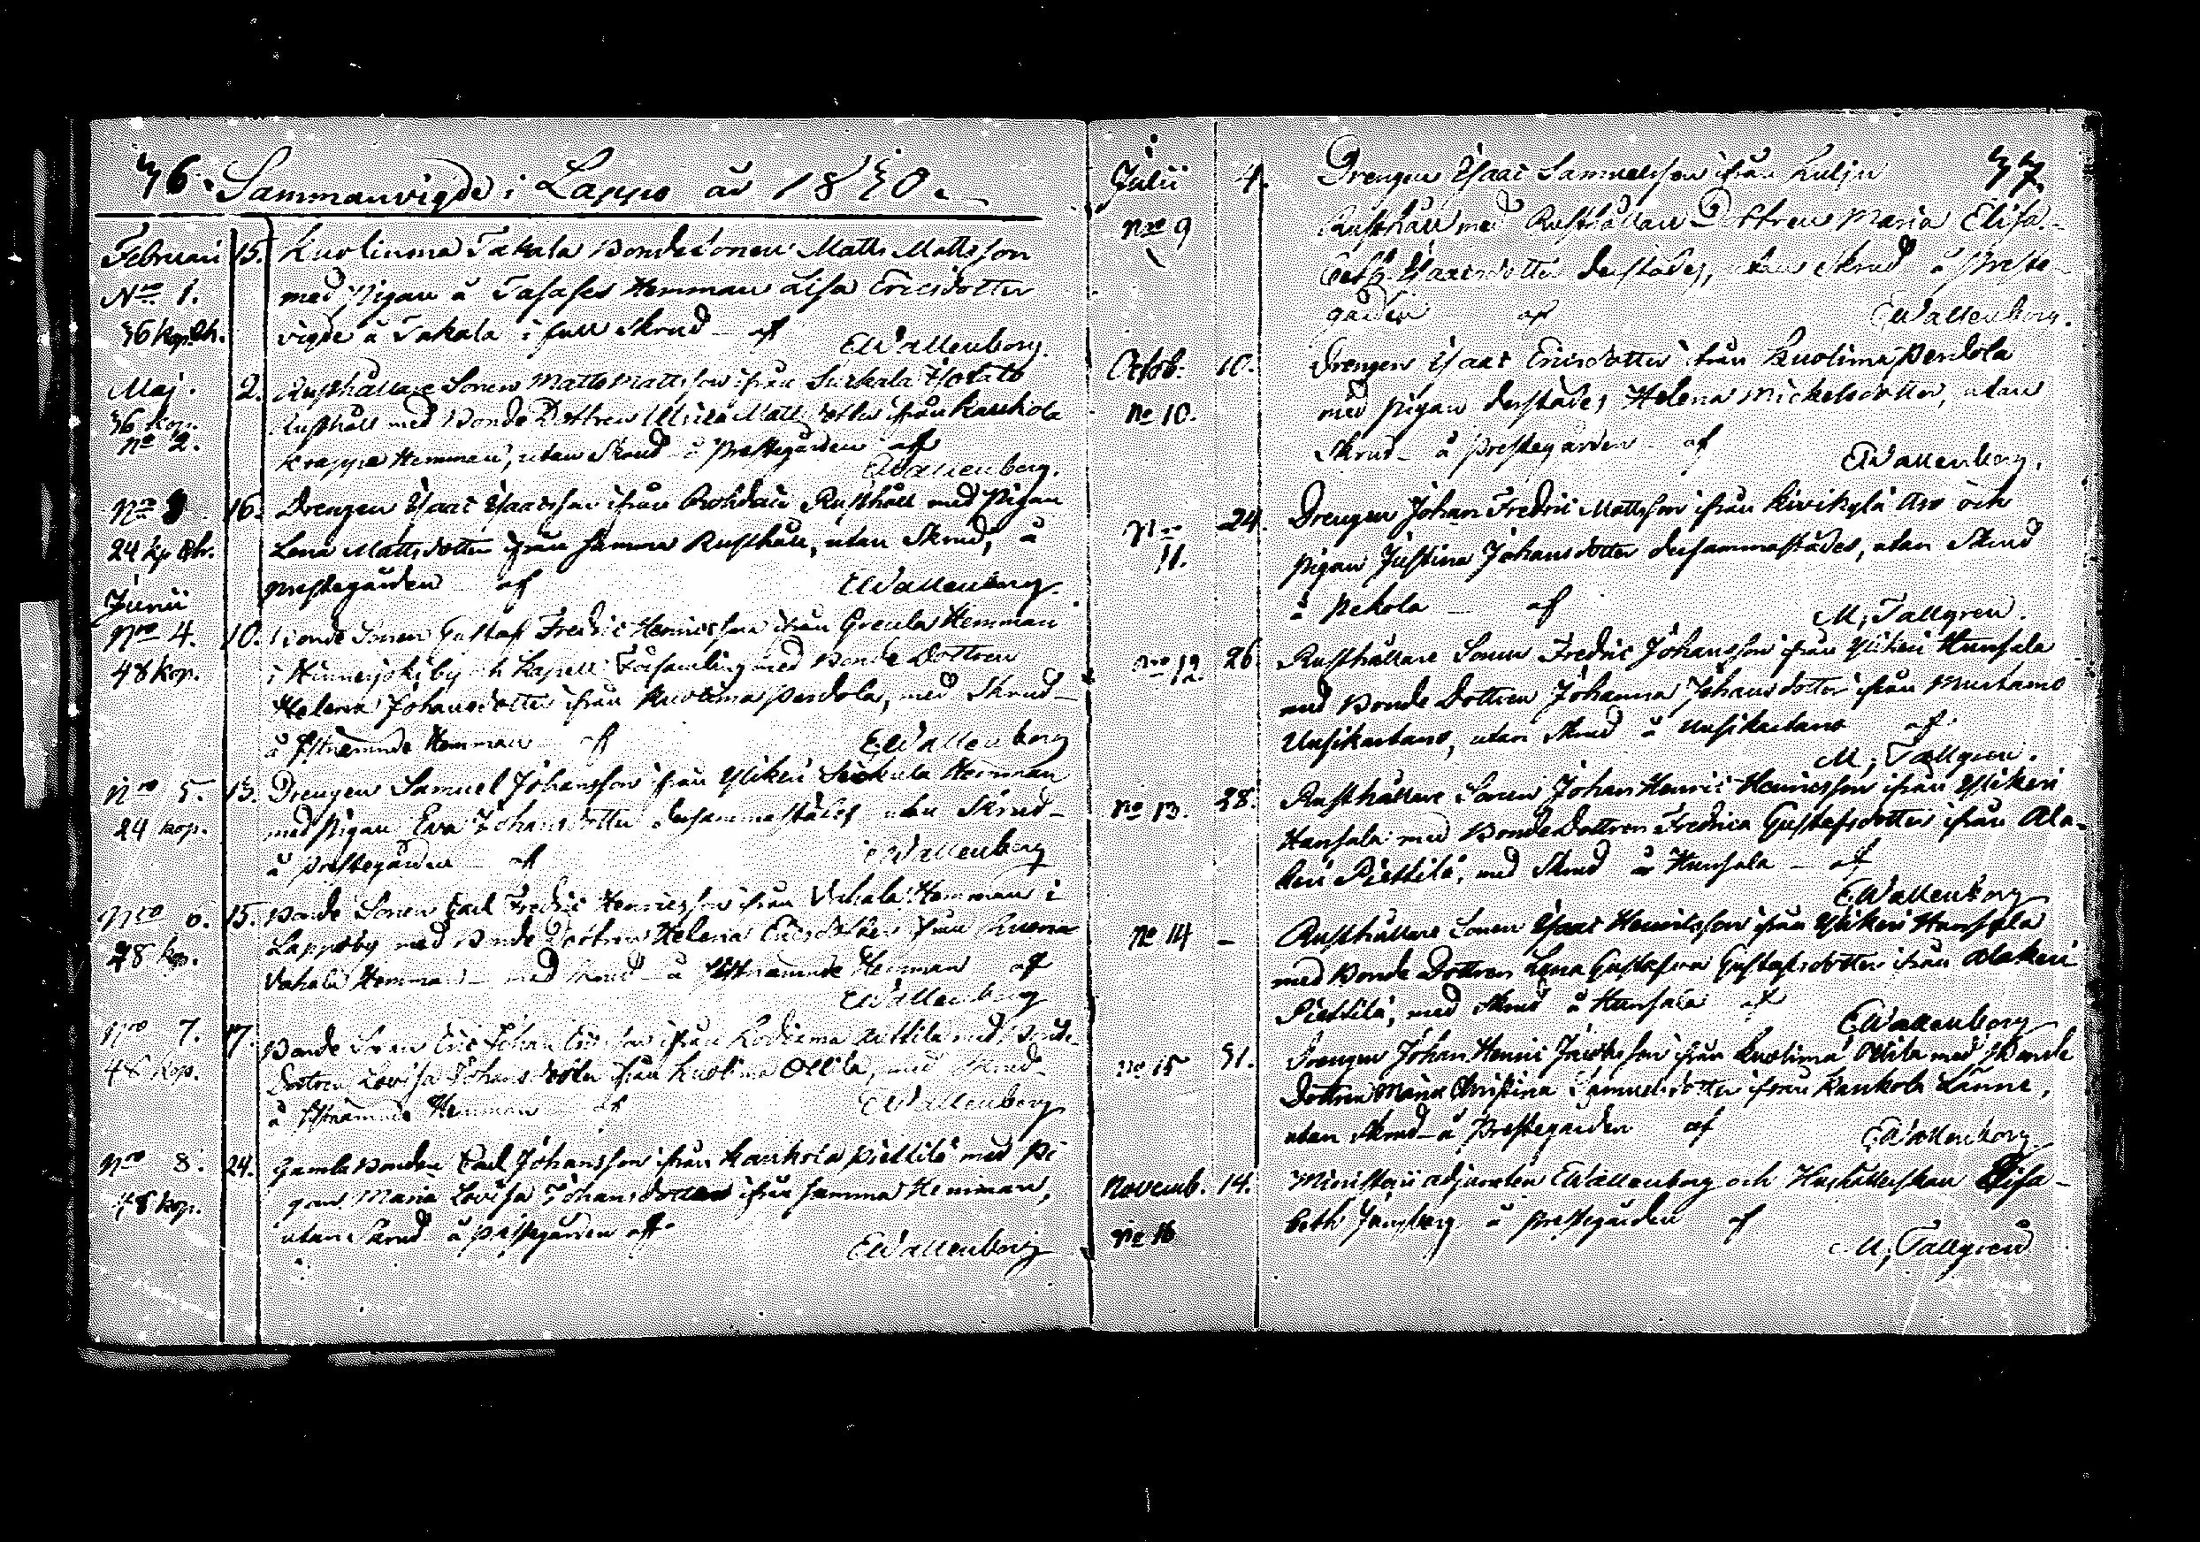 36. Sammanvigde i Lappo år 1830.
Februari 15. Kuolinma Takala Bondesonen Matts Mattsson
Nro 1. med Pigan å Tasases Hemman Lisa Ericsdotter
36 kop. vigde å Takala i full Skrud af
EWallenberg.
Maj. 2. Rusthållare Sonen Matts Mattsson ifrån
36 kop. Rusthåll med Bonde Dottren Ulrica Matts dotter ifrån Kaukola
No 2. Krappe Hemman, utan Skrud å Prestegården af
EWallenberg.
Nro 3 16. Drengen Ysaac Ysaacsson ifrån Rusthåll med Pigan
24 kp Lena Matts dotter ifrån samma Rusthåll, utan Skrud, å
prestegården af EWallenberg.
Junii
Nro 4. 10. Bonde Sonen Gustaf Fredric Henricsson ifrån Greula Hemman
48 kop. i Hinnerjoki by och Kapell Församling med Bonde Dottren
Helena Johansdotter ifrån Kuolima Perdola, med Skrud
å förstnämnde Hemman af EWallenberg
Nro 5. 13. Drengen Samuel Johansson ifrån Ylikeri Hemman
24 kop. med Pigan Eva Johans dotter dersammastädes utan Skrud
å prestegården af EWallenberg
Nro 6. 15. Bonde Sonen Carl Fredric Henricsson ifrån Vahala Hemman i
48 kop. Lappoby med Bonde Dottren Helena Ericsdotter ifrån
Vahala Hemman med Skrud å förstnämnde Hemman af
EWallenberg
Nro 7. 17. Bonde Sonen Eric Johan Ericsson ifrån Kodiema med Bonde
48 kop. Dottren Lovisa Johans dotter ifrån Kuolima Ollila, med Skrud
å förstnämnde Hemman af EWallenberg
Nro 8. 24. Gamle Bonden Carl Johansson ifrån Kaukola Piettilä med Pi
48 kop. gan Maria Lovisa Johans dotter ifrån samma Hemman,
utan Skrud å prestegården af
EWallenberg
Julii 4. Drengen Ysaac Samuelsson ifrån Kulju 37.
Nro 9 Rusthåll med Rusthållare Dottren Maria Elisa-
beth Ysaacsdotter derstädes, utan Skrud å Preste-
gården af EWallenberg.
Octob. 10. Drengen Ysaac Ericsdotter ifrån Kuolima Perdola
No 10. med pigan derstädes Helena Mickelsdotter, utan
Skrud å prestegården af
EWallenberg.
No 11. 24. Drengen Johan Fredric Mattsson ifrån Kivikylä Aro och
pigan Justina Johansdotter dersammastädes, utan Skrud
å Pekola af M, Tallgren.
Nro 12. 26 Rusthållare Sonen Fredric Johansson ifrån Ylikeri Hunsala
med Bonde Dottren Johanna Johans dotter ifrån Murtamo
Uusikartano, utan Skrud å Uusikartano af
M, Tallgren.
No 13. 28. Rusthållare Sonen Johan Henric Henricsson ifrån Ylikeri
Hunsala med Bonde Dottren Fredrica Gustafsdotter ifrån Ala-
keri Piettilä, med Skrud å Hunsala af
EWallenberg
No 14 - Rusthållare Sonen Ysaac Henricsson ifrån Ylikeri Hunsala
med Bonde Dottren Lena Gustafva Gustafsdotter ifrån Alakeri
Piettilä, med Skrud å Hunsala af
EWallenberg
No 15 31. Drengen Johan Henric Jacobsson ifrån Kuolima Ollila med Bonde
Dottren Maria Christina Samuelsdotter ifrån Kaukola Länne,
utan Skrud å Prestegården af EWallenberg.
Novemb. 14. Ministerii adjuncten EWallenberg och Hushållerskan Elisa-
No 16 beth å prestegården af
M, Tallgren